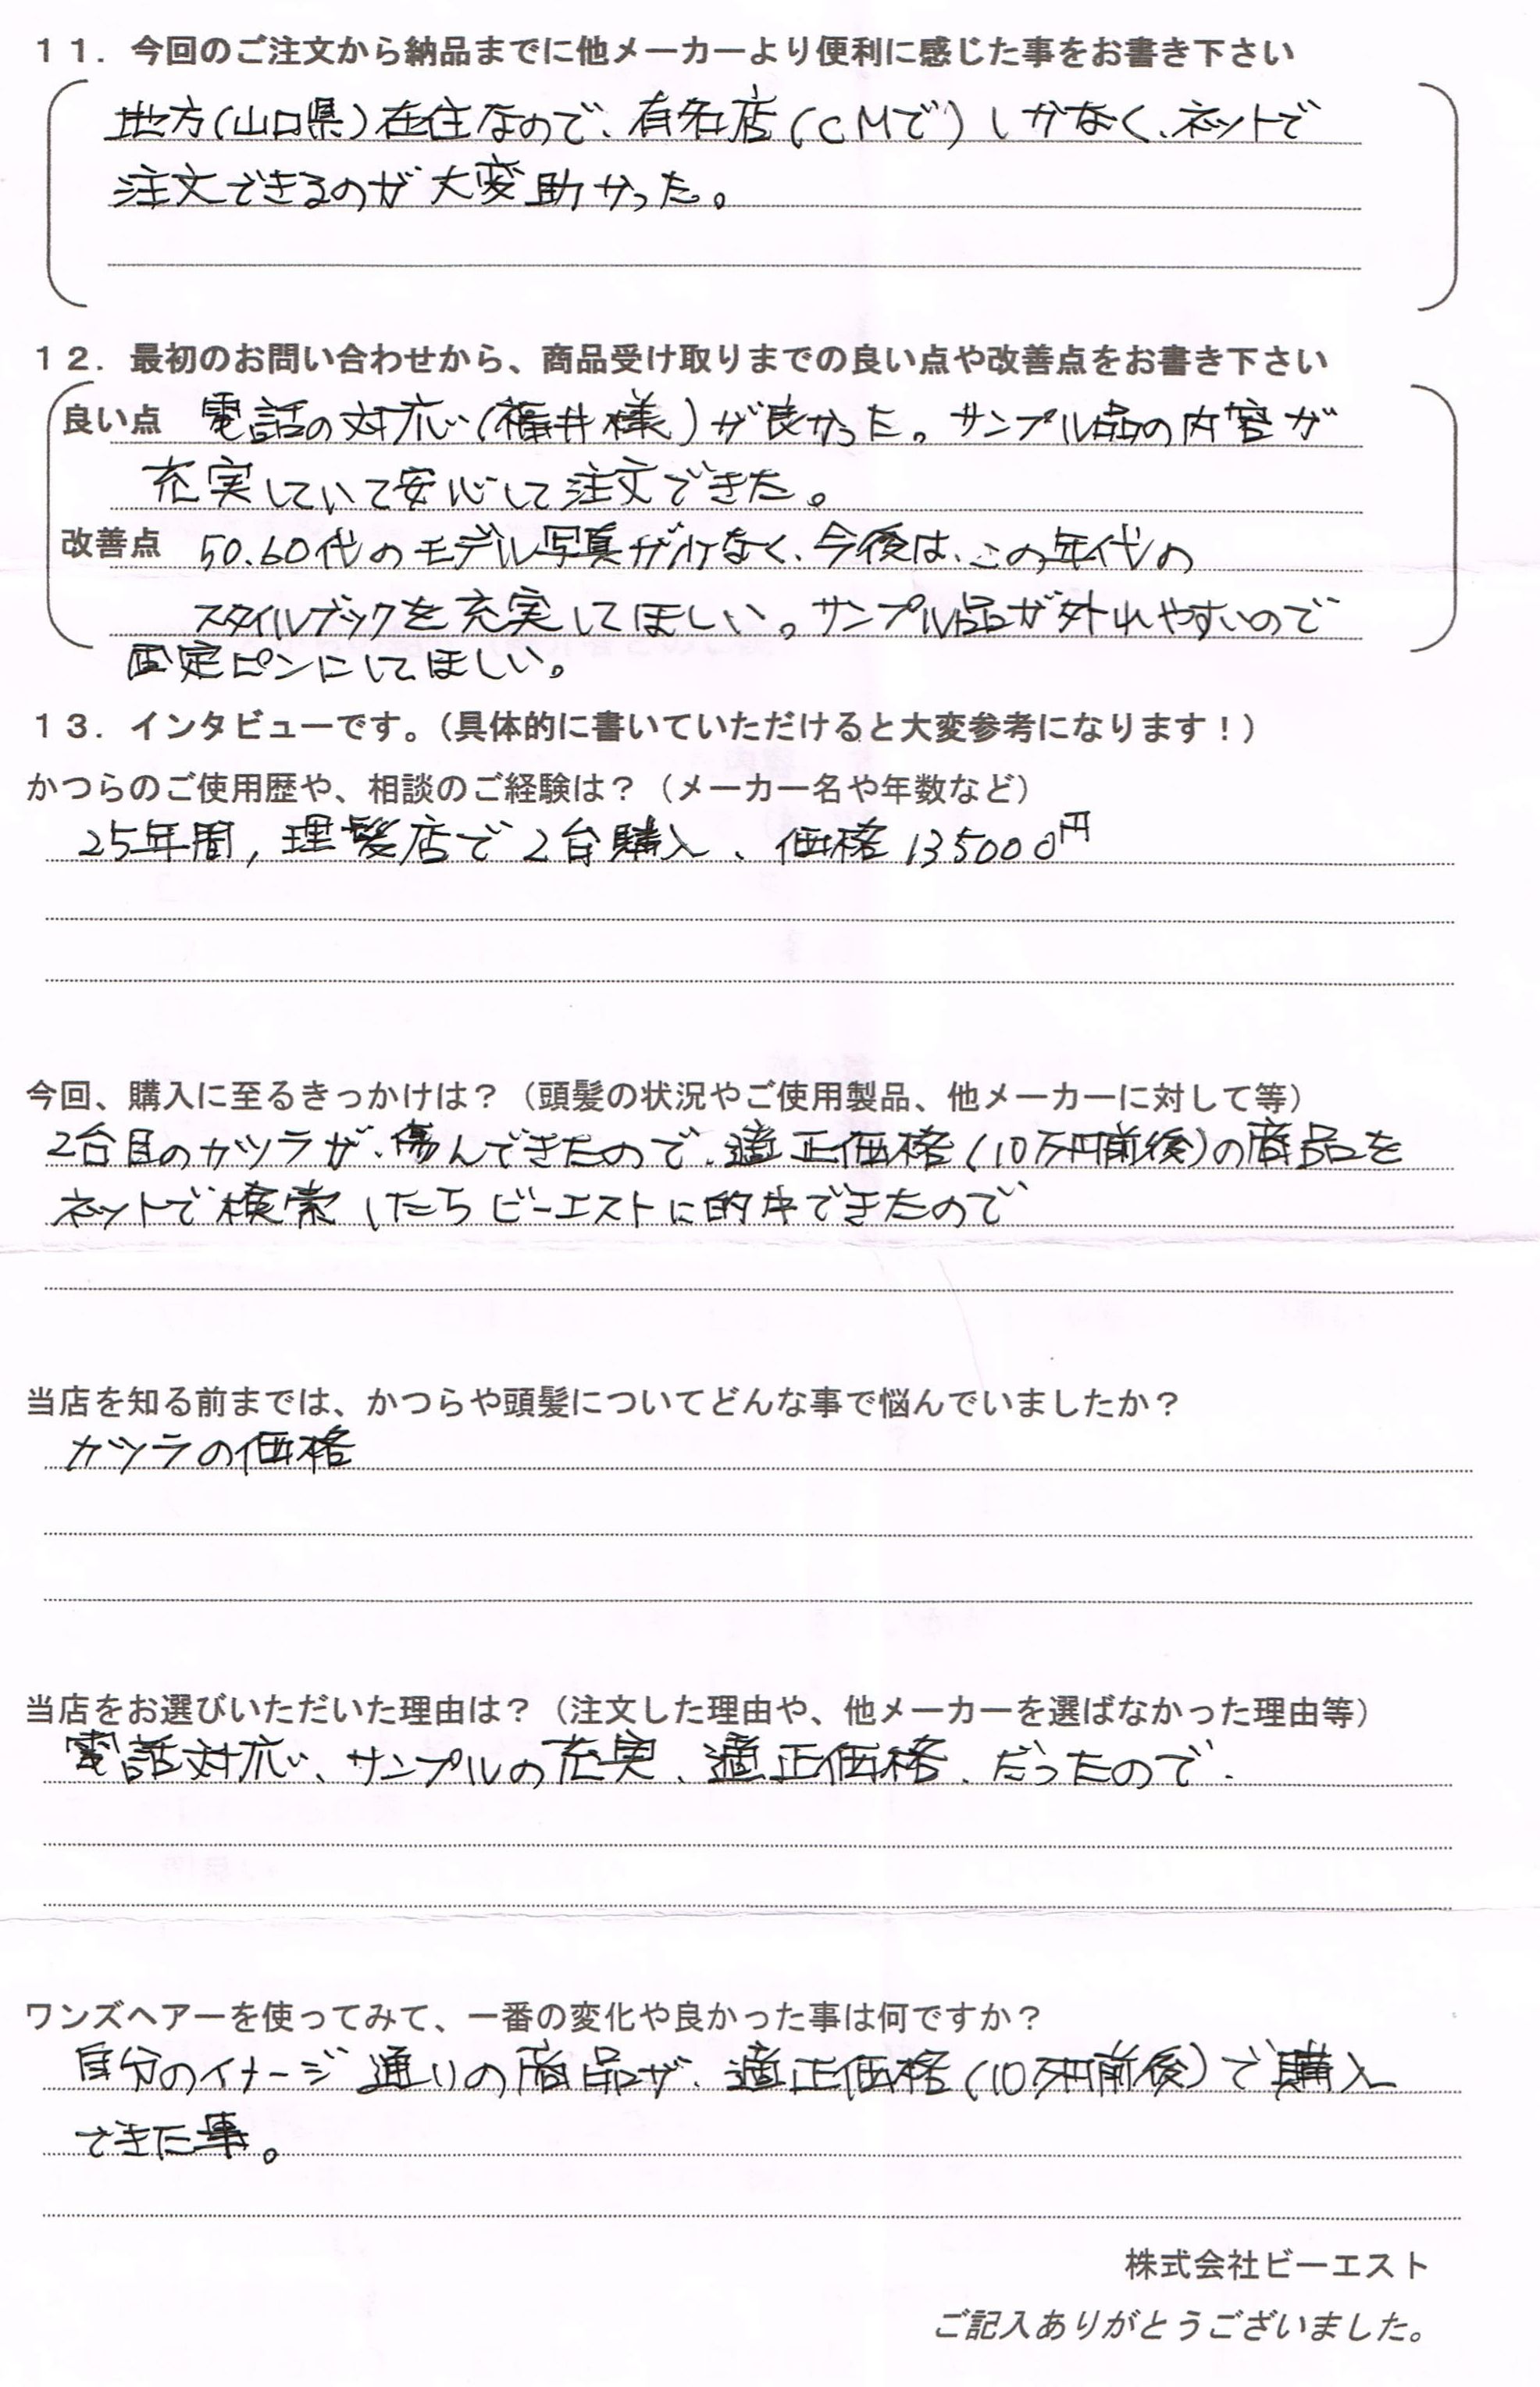 １１．今回のご注文から納品までに他メーカーより便利に感じた事をお書き下さい
地方(山口県)在住なので、有名店(CMで)しかなく、ネットで
注文できるのが大変助かった。
１２．最初のお問い合わせから、商品受け取りまでの良い点や改善点をお書き下さい
良い点 電話の対応(福井様)が良かった。サンプル品の内容が
充実していて安心して注文できた。
改善点 50.60代のモデル写真が少なく、今後は、この年代の
スタイルブックを充実してほしい。サンプル品が外れやすいので
固定ピンにしてほしい。
１３．インタビューです。（具体的に書いていただけると大変参考になります！）
かつらのご使用歴や、相談のご経験は？（メーカー名や年数など）
25年間, 理髪店で2台購入、価格135000円
今回、購入に至るきっかけは？（頭髪の状況やご使用製品、他メーカーに対して等）
2台目のカツラが、傷んできたので、適正価格(10万円前後)の商品を
ネットで検索したらビーエストに的中できたので
当店を知る前までは、かつらや頭髪についてどんな事で悩んでいましたか？
カツラの価格
当店をお選びいただいた理由は？（注文した理由や、他メーカーを選ばなかった理由等）
電話対応、サンプルの充実、適正価格、だったので.
ワンズヘアーを使ってみて、一番の変化や良かった事は何ですか？
自分のイメージ通りの商品が、適正価格(10万円前後)で購入
できた事。
株式会社ビーエスト
ご記入ありがとうございました。